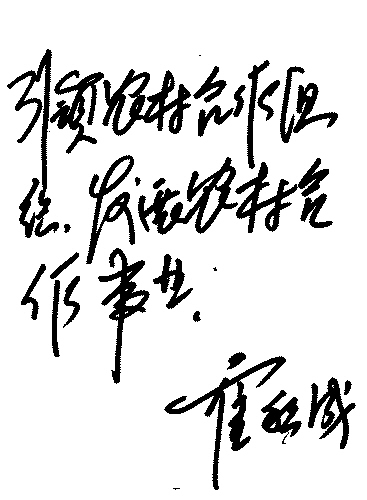 引领农村合作组
织、发展农村合
作事业.
霍成